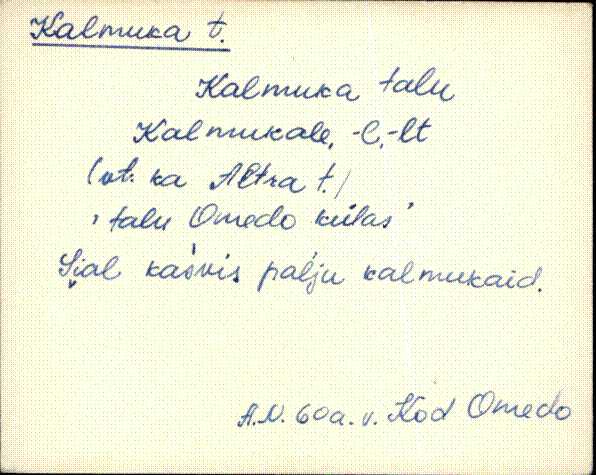 Kalmuka t.
Kalmuka talu
Kalmukale, -l, -lt
(vt. ka Altra t.)
'talu Omedo külas'
Sial kasvis palju kalmukaid.
A.N. 60a. v. Kod Omedo